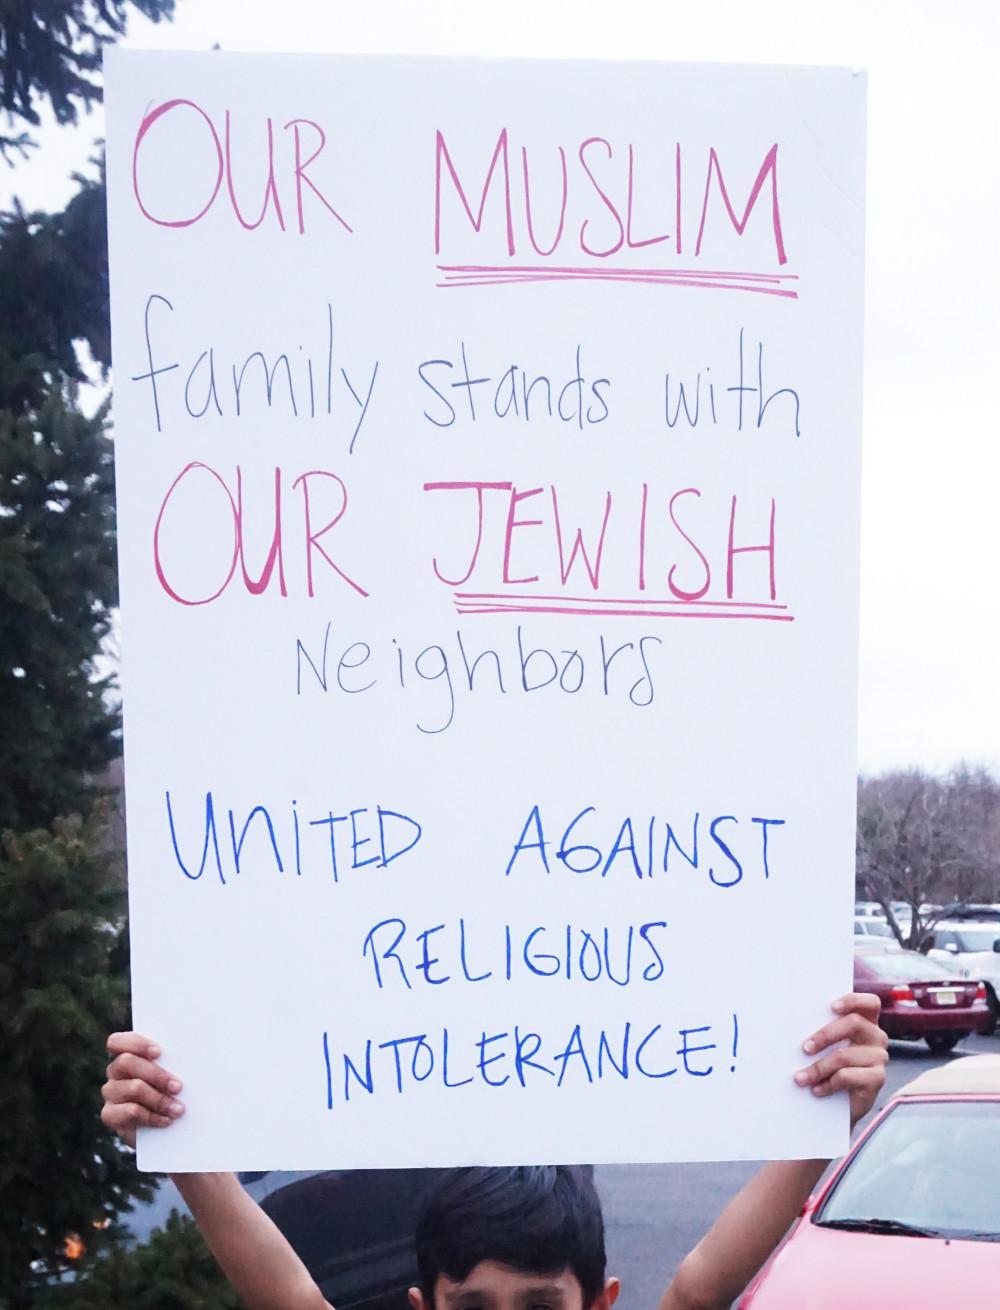 OUR MUSLIM
family stands with
OUR JEWISH
Neighbors
UNITED AGAINST
RELIGIOUS
INTOLERANCE!